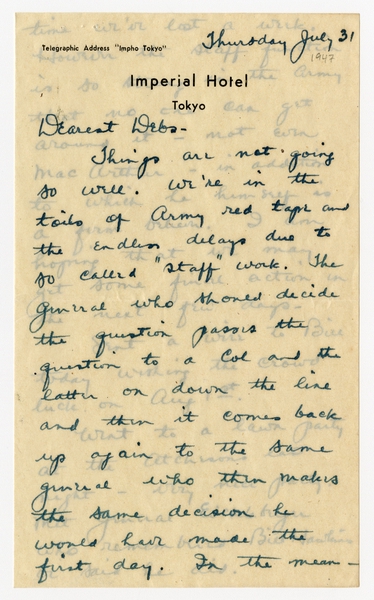 Thursday July 31
1947
Telegraphic Address "Impho Tokyo"
Imperial Hotel
Tokyo
Dearest Debs-
Things are not going
so well. We're in the
toils of Army red tape and
the endless delays due to
so called "staff" work. The
general who should decide
the question passes the
question to a Col and the
latter on down the line
and then it comes back
up again to the same
general who then makes
the same decision he
would have made the
first day. In the mean-